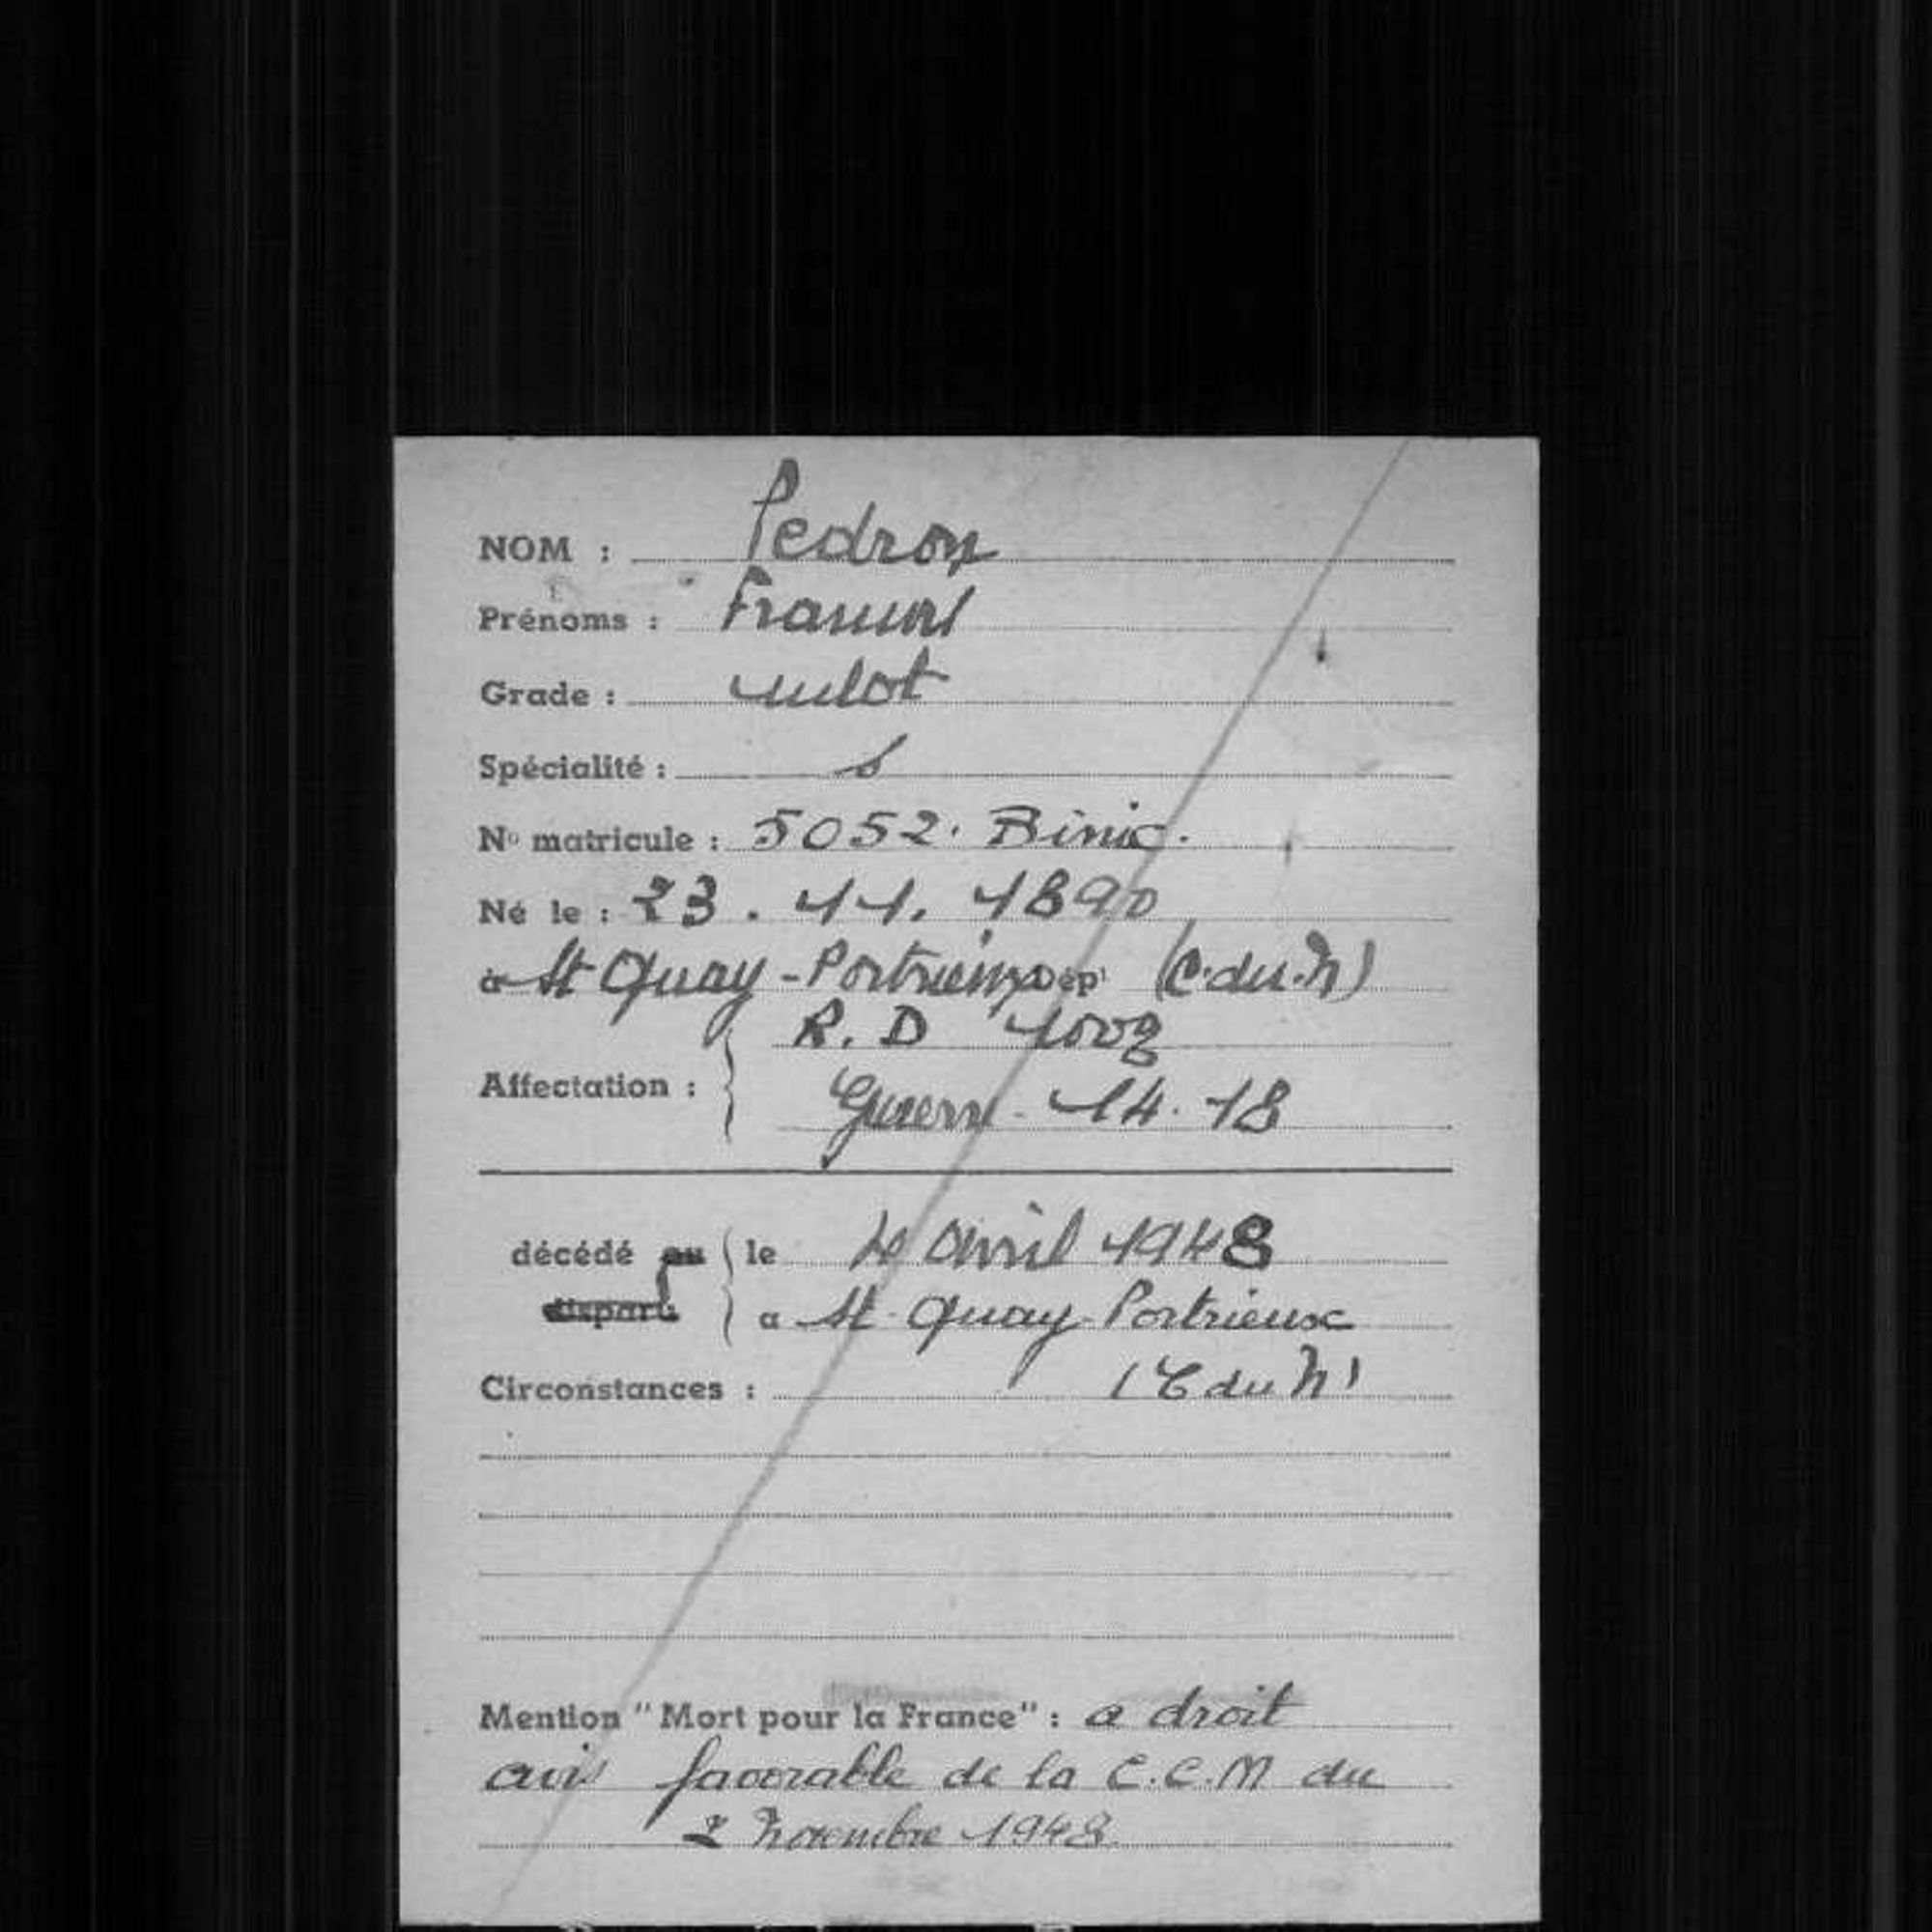 NOM : Pedron
Prénoms : Francois
Grade : mlot
Spécialité : s
No matricule : 5052. Binic.
Né le : 23. 11. 1890
à St Quay-Portrieux Dépt (C.du.N)
R. D
Affectation : Guerre - 14. 18
décédé ou le 4 avril 1948
disparu à St-Quay-Portrieux
Circonstances : (C du N)
Mention "Mort pour la France" : a droit
avis favorable de la C.C.M du
2 novembre 1948